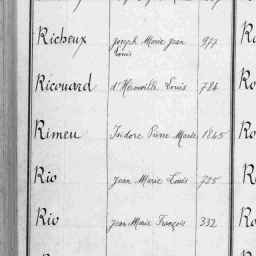 Richeux Joseph Marie Jean 977
Louis
Ricouard d'Herouville Louis 784
Rimeu Isidore Pierre Marie 1845
Rio Jean Marie Louis 725
Rio Jean Marie François 332